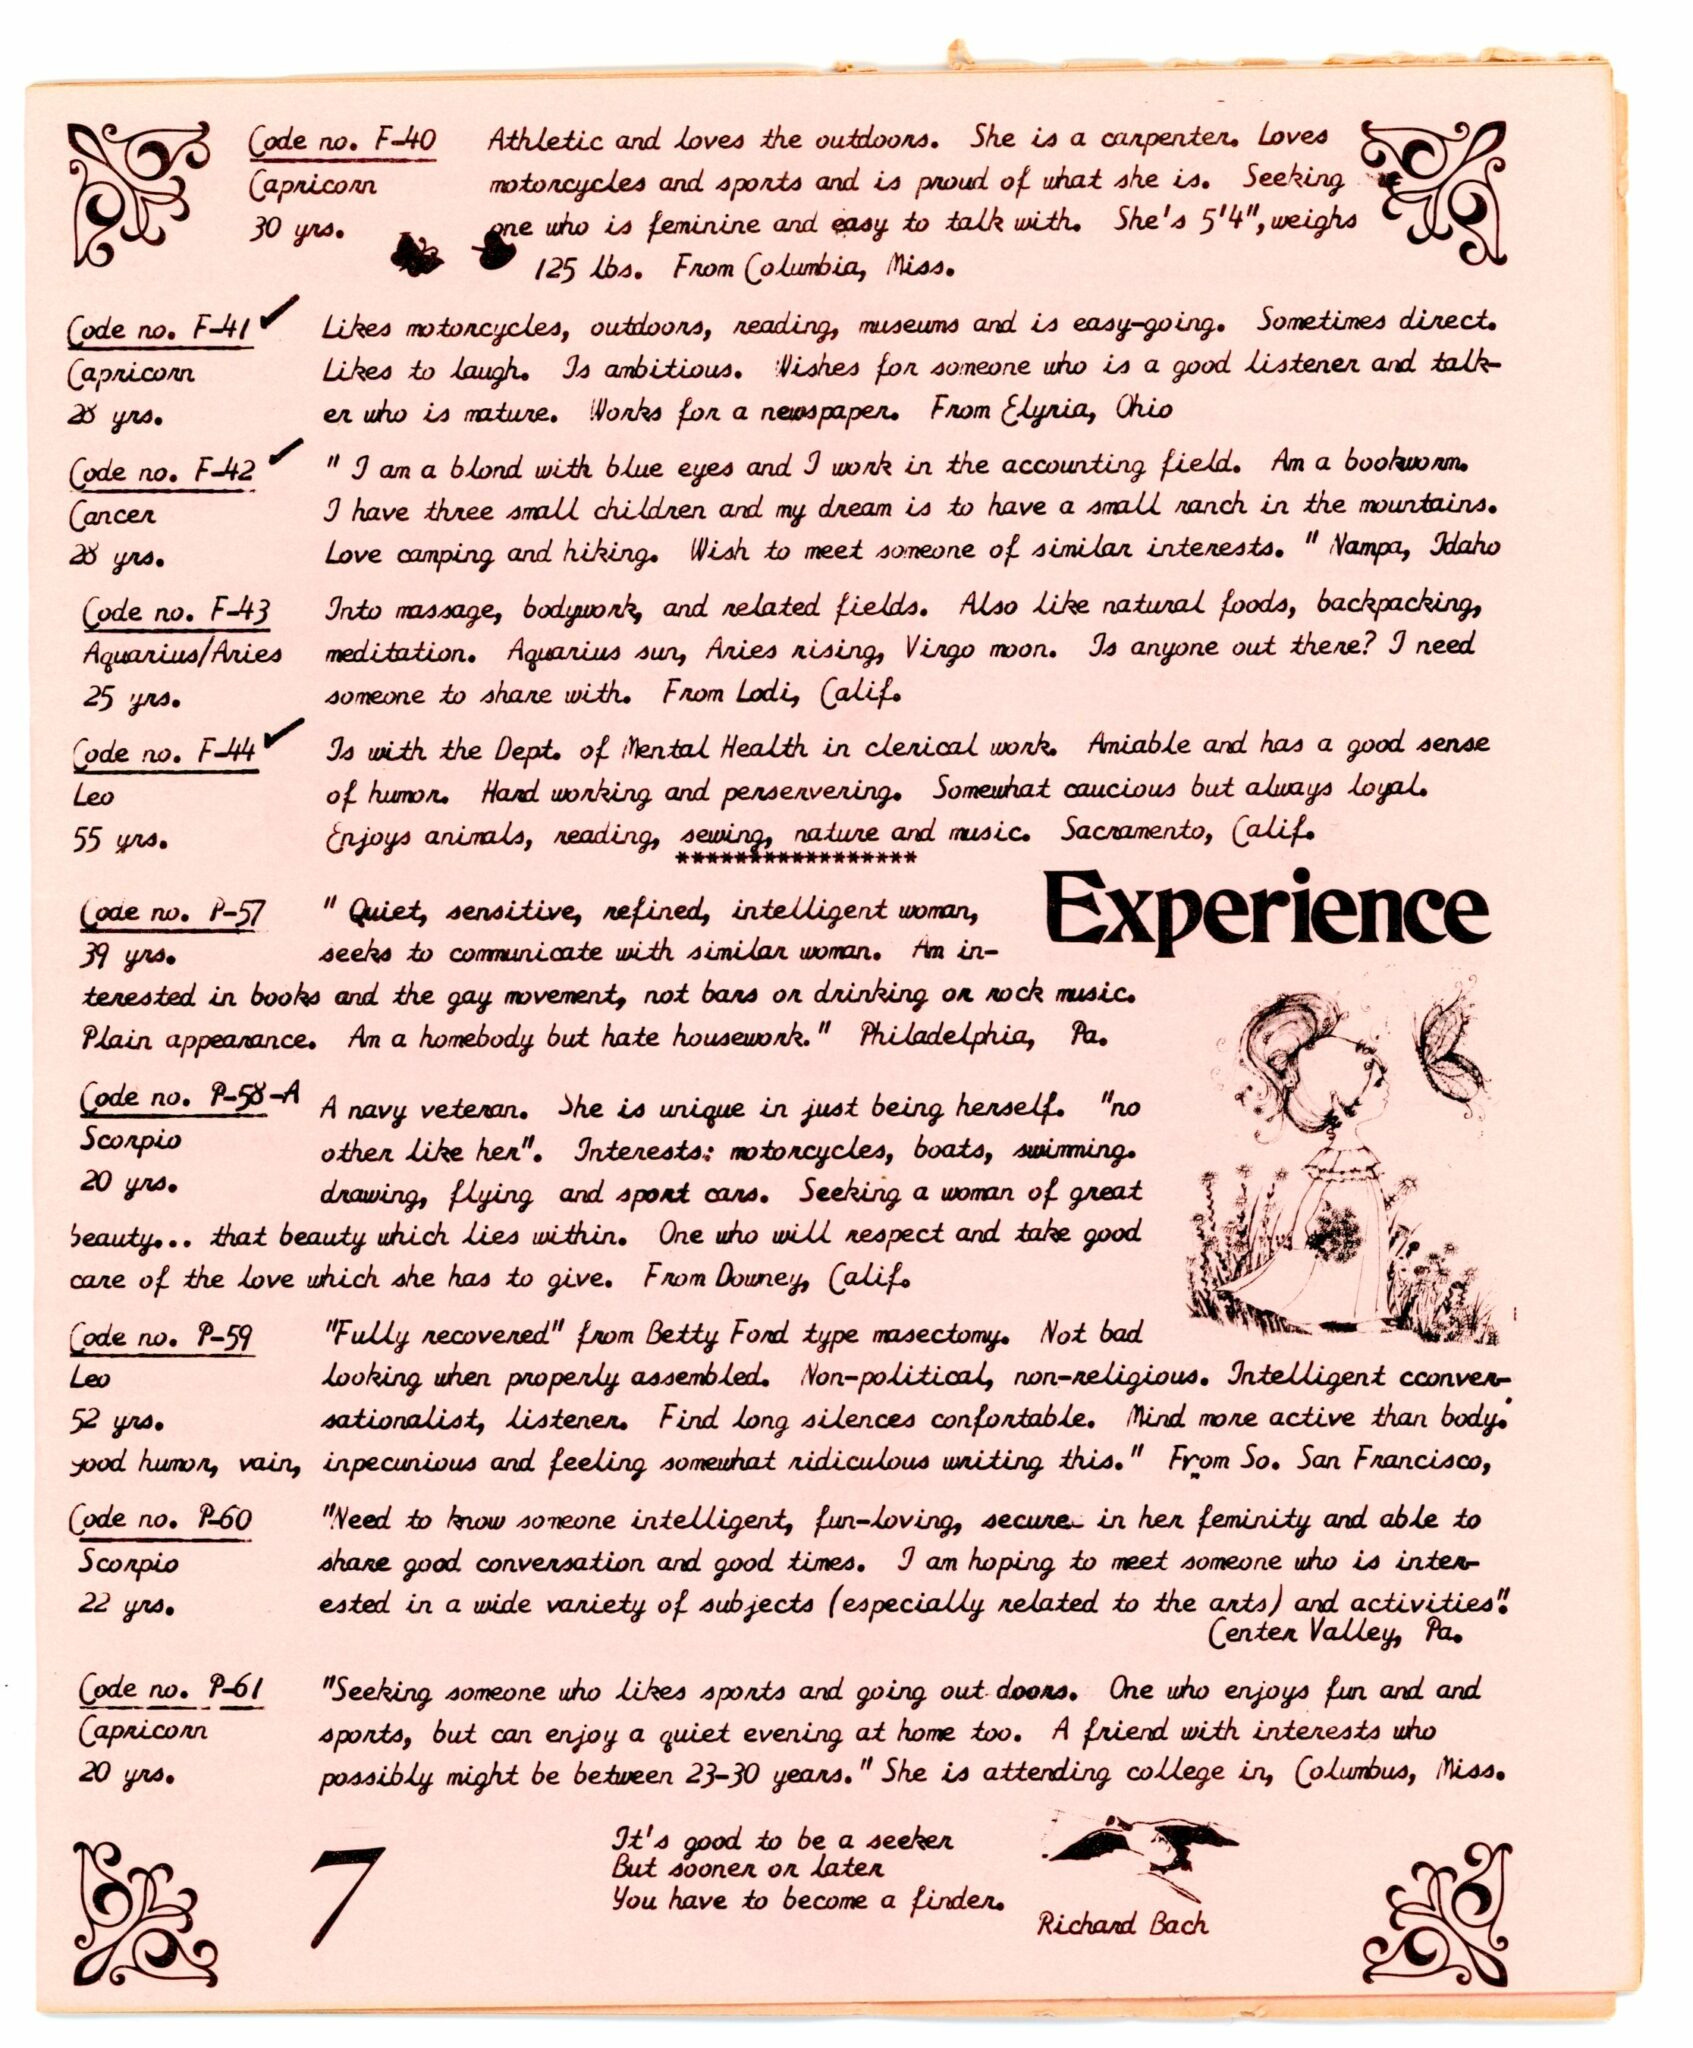 Code no. F-40 Athletic and loves the outdoors. She is a carpenter. Loves
Capricorn motorcycles and sports and is proud of what she is. Seeking
30 yrs. one who is feminine and easy to talk with. She's 5'4", weighs
125 lbs. From Columbia, Miss.
Code no. F-41 Likes motorcycles, outdoors, reading, museums and is easy-going. Sometimes direct.
Capricorn Likes to laugh. Is ambitious. Wishes for someone who is a good listener and talk-
28 yrs. er who is mature. Works for a newspaper. From Elyria, Ohio
Code no. F-42 " I am a blond with blue eyes and I work in the accounting field. Am a bookworm.
Cancer I have three small children and my dream is to have a small ranch in the mountains.
28 yrs. Love camping and hiking. Wish to meet someone of similar interests. " Nampa, Idaho
Code no. F-43 Into massage, bodywork, and related fields. Also like natural foods, backpacking,
Aquarius/Aries meditation. Aquarius sun, Aries rising, Virgo moon. Is anyone out there? I need
25 yrs. someone to share with. From Lodi, Calif.
Code no. F-44 Is with the Dept. of Mental Health in clerical work. Amiable and has a good sense
Leo of humor. Hard working and perservering. Somewhat caucious but always loyal.
55 yrs. Enjoys animals, reading, sewing, nature and music. Sacramento, Calif.
*****************
Experience
Code no. P-57 " Quiet, sensitive, refined, intelligent woman,
39 yrs. seeks to communicate with similar woman. Am in-
terested in books and the gay movement, not bars or drinking or rock music.
Plain appearance. Am a homebody but hate housework." Philadelphia, Pa.
Code no. P-58-A A navy veteran. She is unique in just being herself. "no
Scorpio other like her". Interests: motorcycles, boats, swimming.
20 yrs. drawing, flying and sport cars. Seeking a woman of great
beauty... that beauty which lies within. One who will respect and take good
care of the love which she has to give. From Downey, Calif.
Code no. P-59 "Fully recovered" from Betty Ford type masectomy. Not bad
Leo looking when properly assembled. Non-political, non-religious. Intelligent cconver-
52 yrs. sationalist, listener. Find long silences confortable. Mind more active than body.
good humor, vain, inpecunious and feeling somewhat ridiculous writing this." From So. San Francisco,
Code no. P-60 "Need to know someone intelligent, fun-loving, secure in her feminity and able to
Scorpio share good conversation and good times. I am hoping to meet someone who is inter-
22 yrs. ested in a wide variety of subjects (especially related to the arts) and activities".
Center Valley, Pa.
Code no. P-61 "Seeking someone who likes sports and going out doors. One who enjoys fun and and
Capricorn sports, but can enjoy a quiet evening at home too. A friend with interests who
20 yrs. possibly might be between 23-30 years." She is attending college in, Columbus, Miss.
7
It's good to be a seeker
But sooner or later
You have to become a finder.
Richard Bach